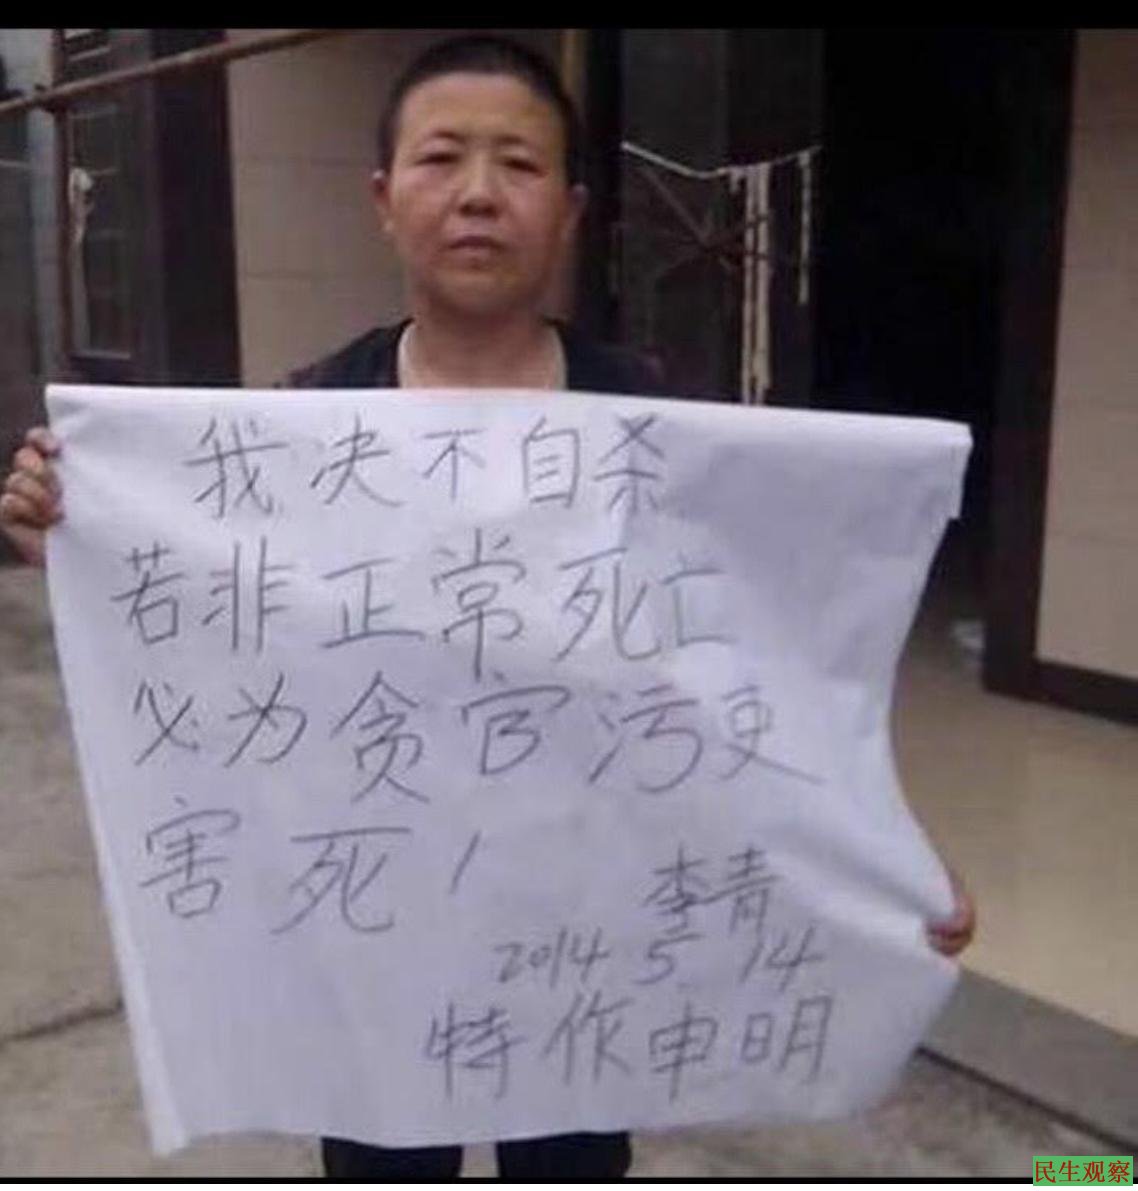 我决不自杀
若非正常死亡
必为贪官污吏
害死！
李青
2014 5 14
特作申明
民生观察